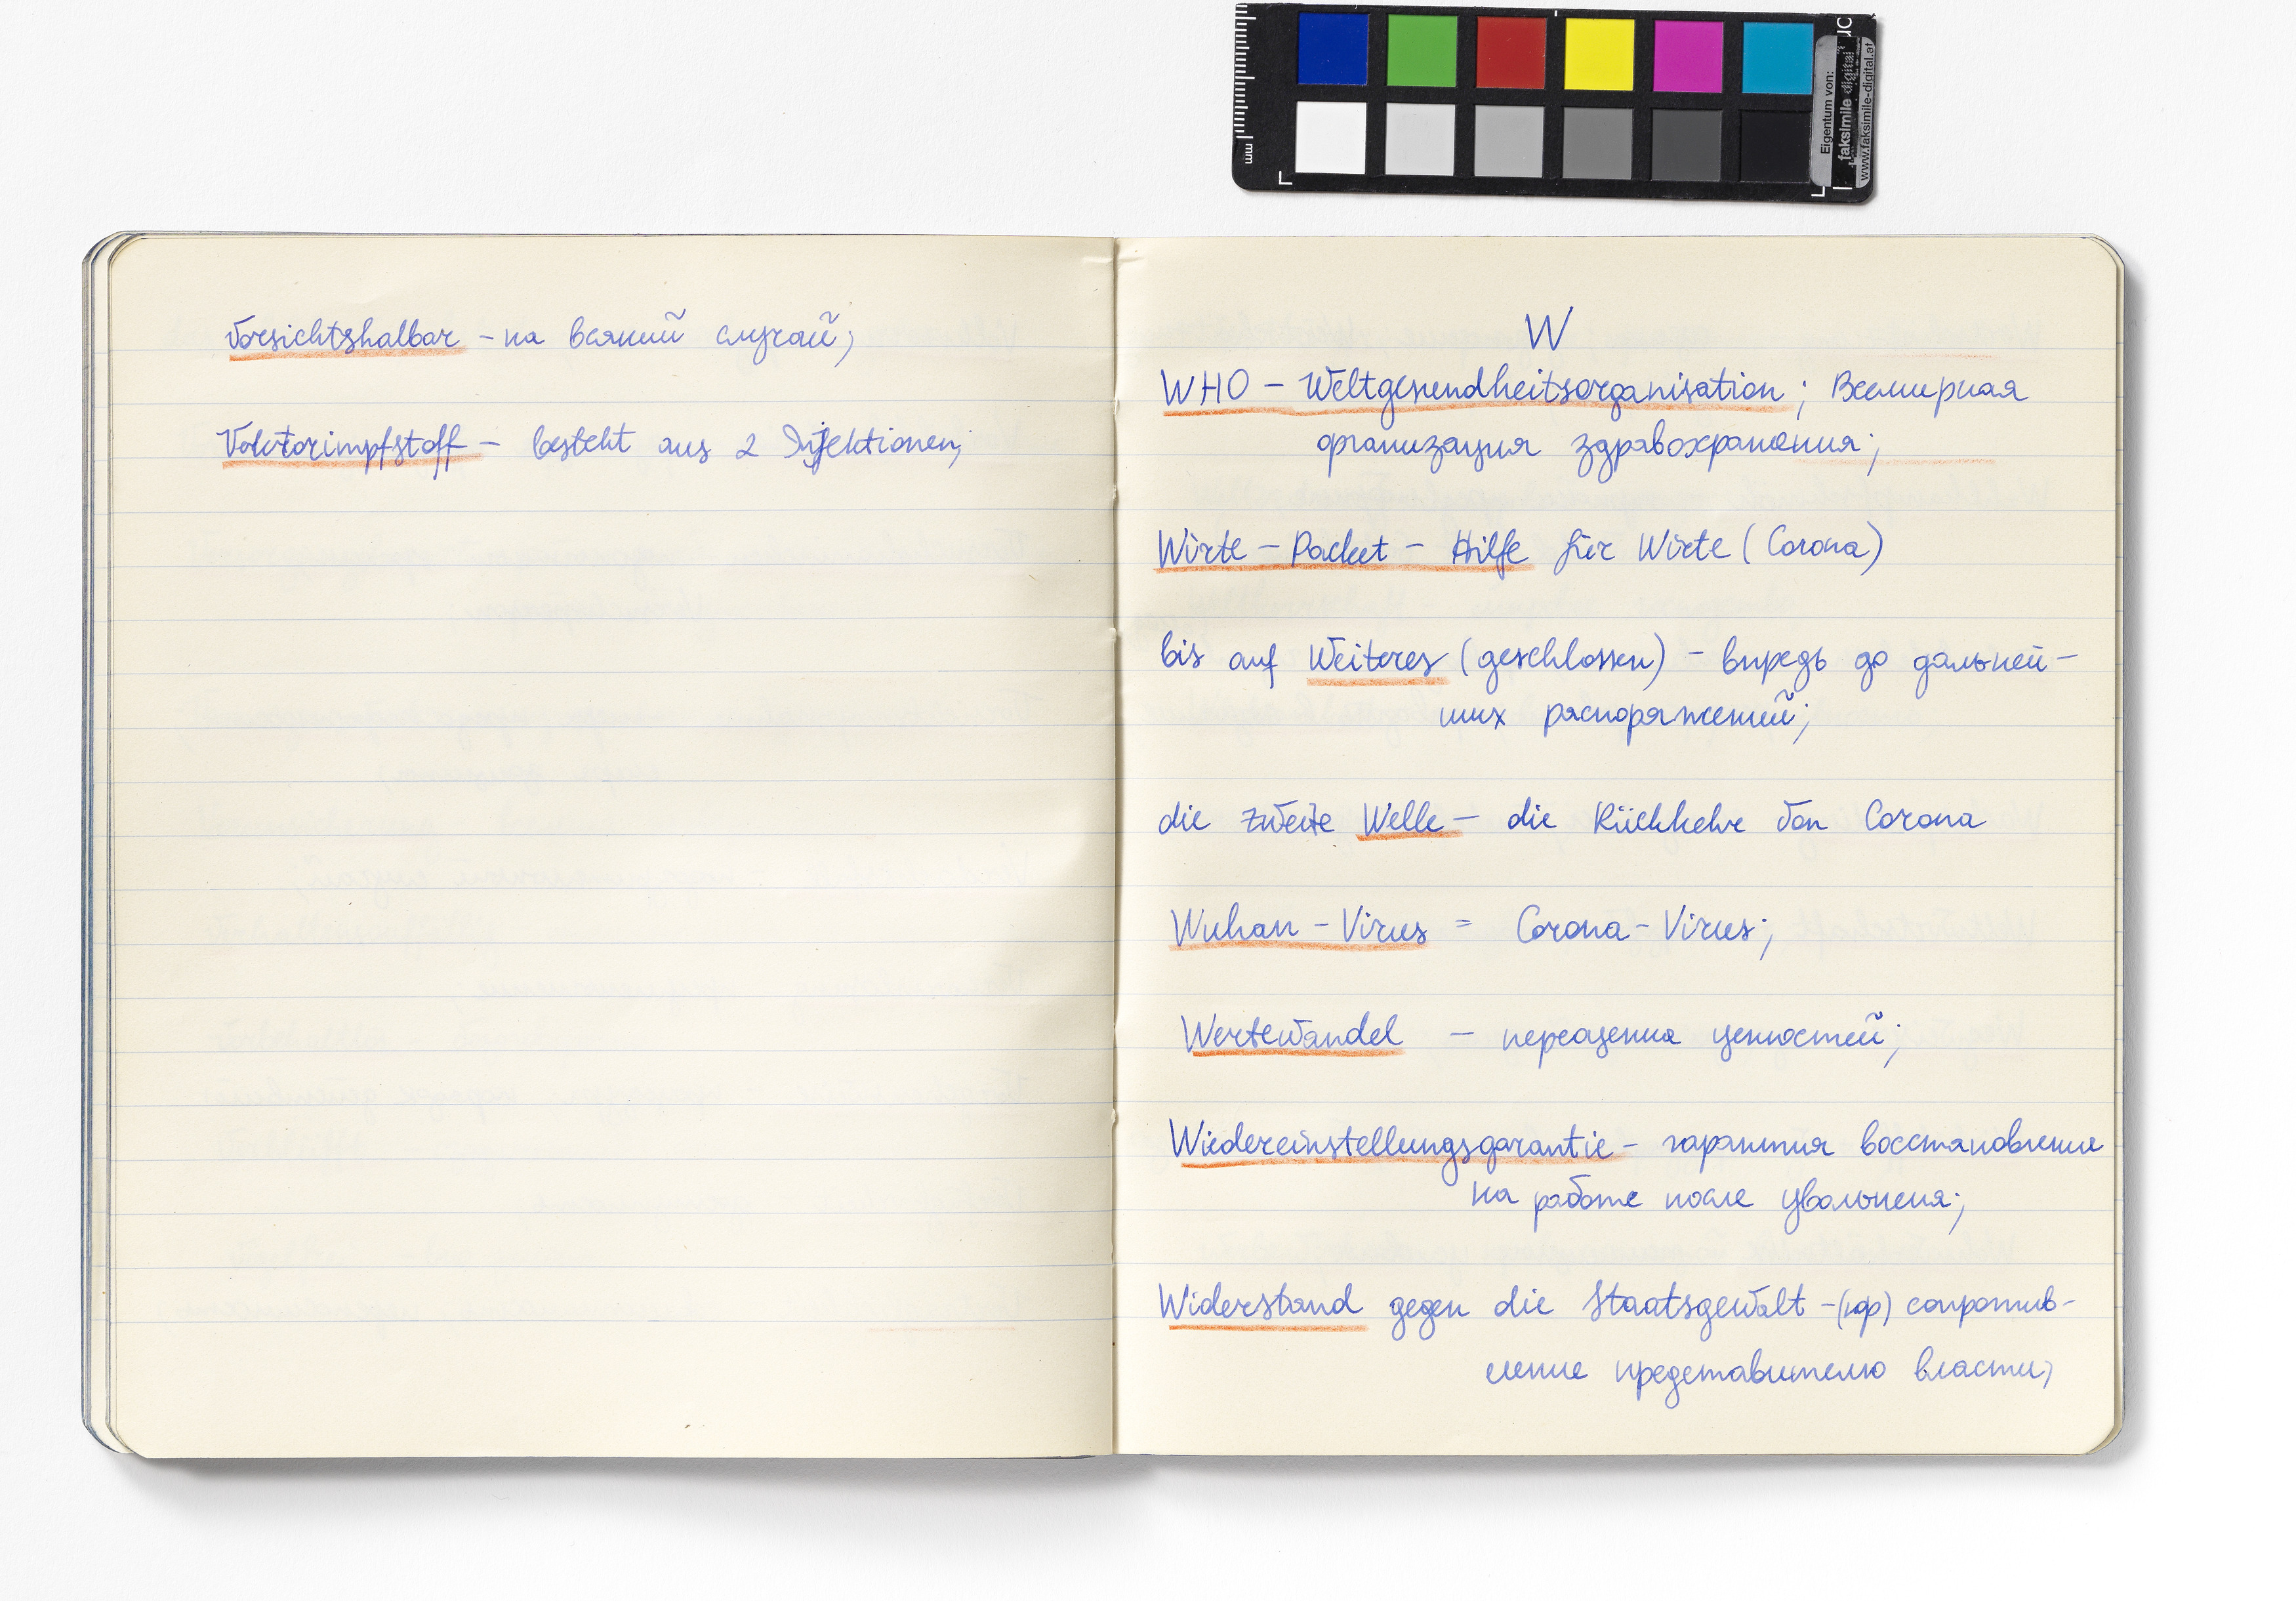 mm
Eigentum von:
faksimile digital
www.faksimile-digital.at
Vorsichtshalbar - на всякий случай;
Vektorimpfstoff - besteht aus 2 Injektionen;
W
WHO - Weltgesundheitsorganisation; Всемирная
организация здравохранения;
Wirte - Packet - Hilfe für Wirte (Corona)
bis auf Weiteres (geschlossen) - впредь до дальней-
ших распоряжений;
die zweite Welle - die Rückkehr von Corona
Wuhan - Virus = Corona - Virus;
Wertewandel - переоценка ценностей;
Wiedereinstellungsgarantie - гарантия восстановление
на работе после увольнения;
Widerstand gegen die Staatsgewalt - (юр) сопротив-
ление представителю власти;